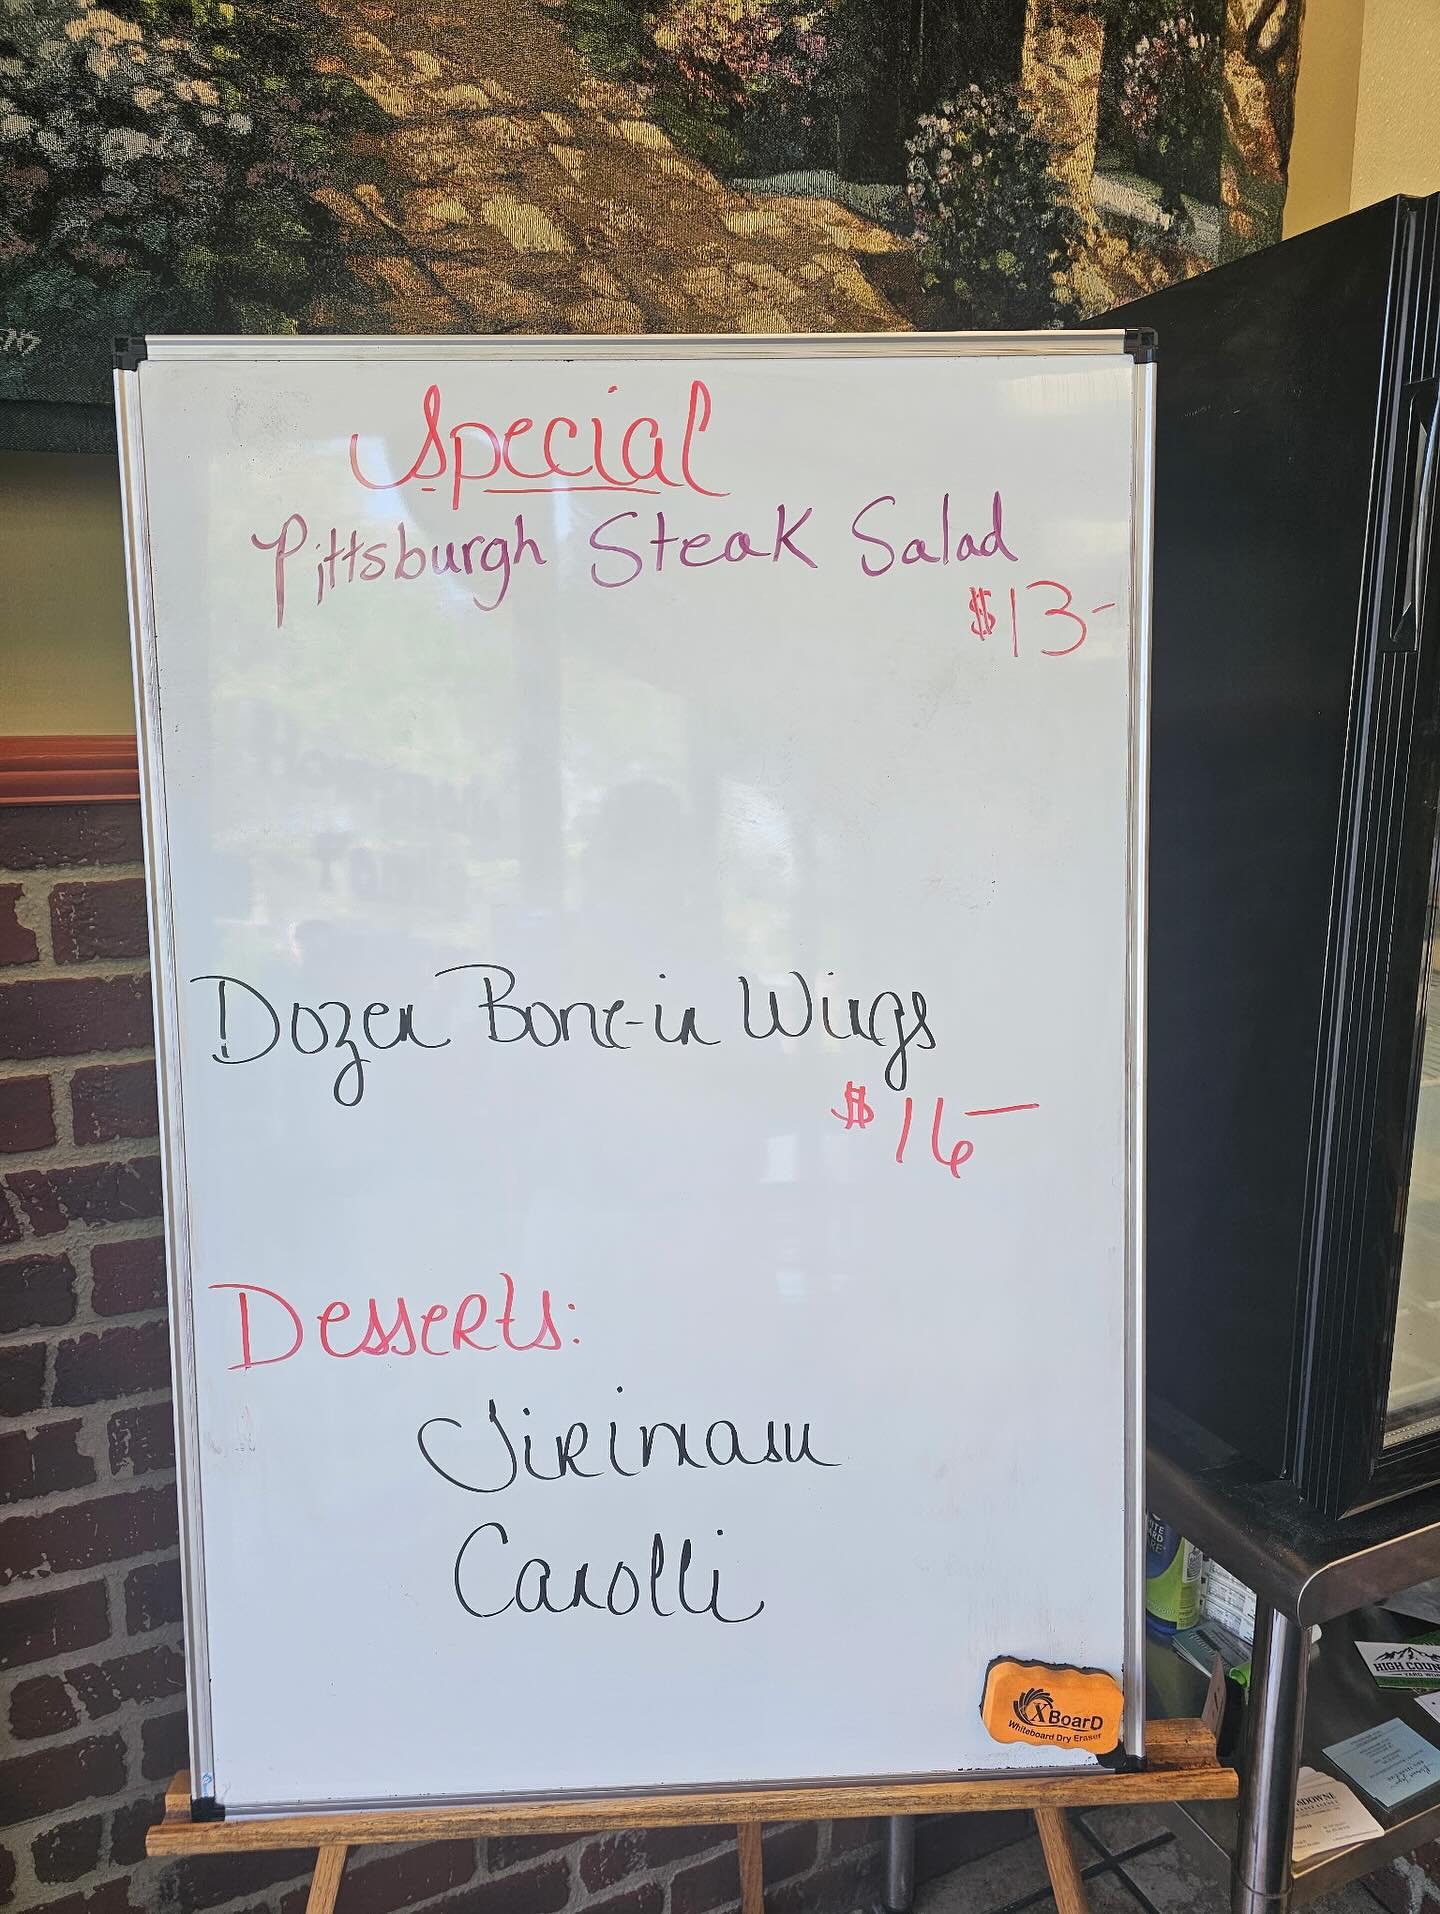 Special
Pittsburgh Steak Salad
$13-
Dozen Bone-in Wings
$16-
Desserts:
Tirimasu
Canolli
XBoarD
Whiteboard Dry Eraser
HIGH COUN
YARD WOR